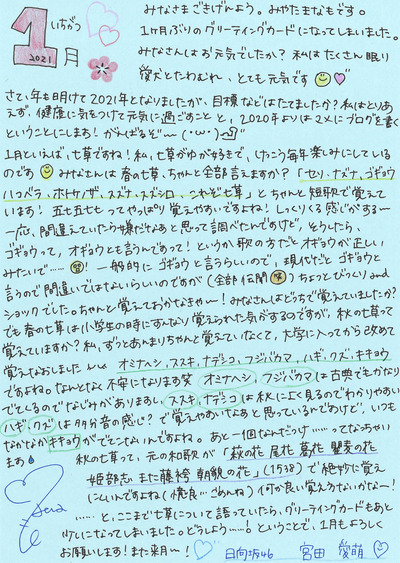 1 いちがつ
2021 月
みなさまごきげんよう。みやたまなもです。
1ヶ月ぶりのグリーティングカードになってしまいました。
みなさんはお元気でしたか？私はたくさん眠り
愛犬とたわむれ、とても元気です
さて、年も明けて2021年となりましたが、目標などはたてましたか？私はとりあ
えず、健康に気をつけて元気に過ごすことと、2020年よりは2メにブログを書く
ということにします！がんばるぞ〜(・ω・)
1月といえば、七草ですね！私、七草がゆが好きで、けっこう毎年楽しみにしている
のです みなさんは春の七草、ちゃんと全部言えますか？「セリ・ナズナ、ゴギョウ
ハコベラ、ホトケノザ、スズナ、スズシロ、これぞ七草」とちゃんと短歌で覚えて
います！五七五七七ってやっぱり覚えやすいですよね！しっくりくる感じがする〜
一応、間違えていたら嫌だなぁと思って調べたんですけど、そうしたら、
ゴギョウって、オギョウとも言うんですって！というか歌の方だとオギョウが正しい
みたいで…… ！一般的にゴギョウと言うらしいので、現代だとゴギョウと
言うので間違いではないらしいのですが(全部伝聞 )ちょっとびっくりand
ショックでした。ちゃんと覚えておかなきゃー！みなさんはどっちで覚えていましたか？
でも春の七草は小学生の時にすんなり覚えられた気がするのですが、秋の七草って
覚えていますか？私、ずっとあんまりちゃんと覚えていなくて、大学に入ってから改めて
覚えなおしました オミナヘシ、ススキ、ナデシコ、フジバカマ、ハギ、クズ、キキョウ
ですよね。なんとなく不安になります笑 オミナヘシ フジバカマは古典でもかなり
でてくるのでなじみがありますし、ススキ、ナデシコは秋によく見るのでわかりやすい
ハギ、クズは多分音の感じ？で覚えやすいなぁと思っているんですけど、いつも
なかなかキキョウがでてこないんですよね。あと一個なんだっけ……ってなっちゃい
ます
秋の七草って、元の和歌が「秋の花 尾花 葛花 瞿麦の花
姫部志 また藤袴 朝貌の花」(1538)で絶妙に覚え
にくいんですよね(憶良…ごめんね)何か良い覚え方ないかなー！
……と、ここまで七草について語っていたら、グリーティングカードもあと
少しになってしまいました。どうしよう……！ということで、1月もよろしく
お願いします！また来月ー！ 日向坂46 宮田愛萌